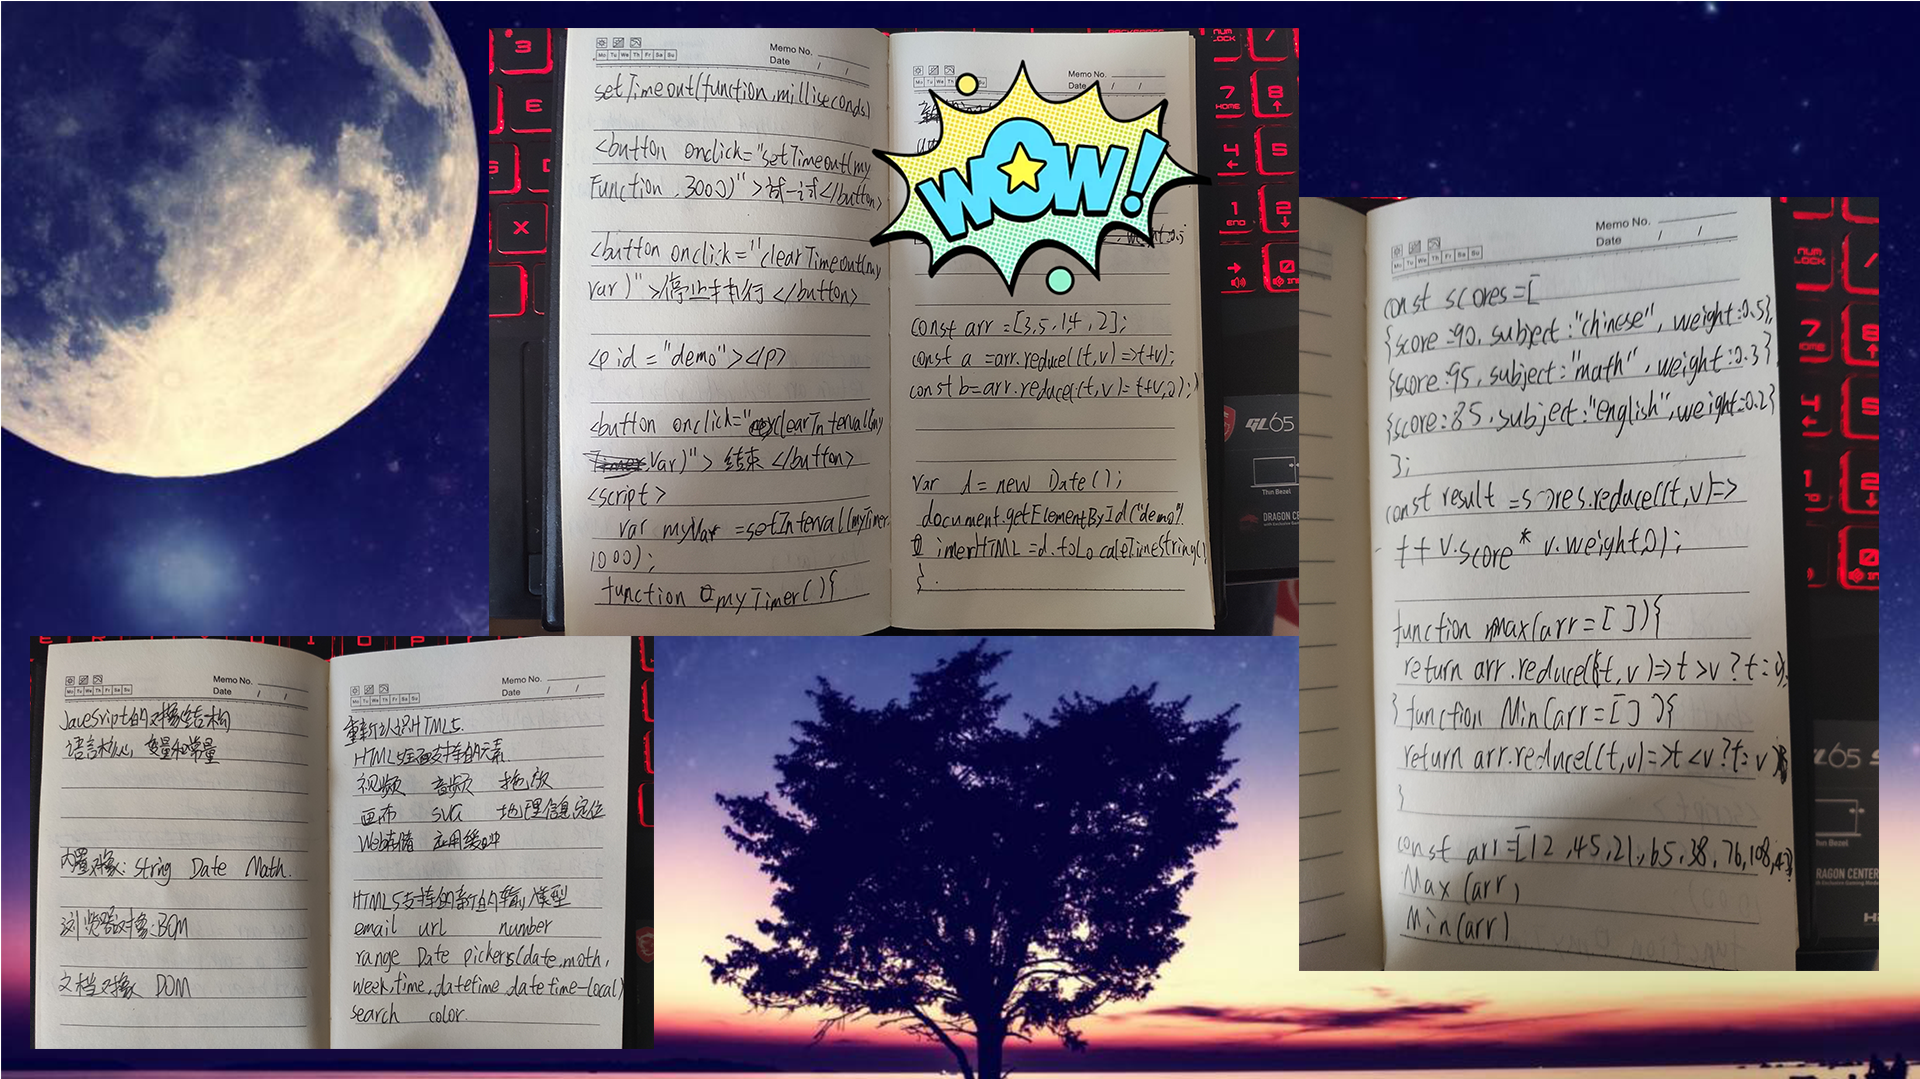 Memo No.
Date / /
Mo Tu We Th Fr Sa Su
setTimeout(function,milliseconds)
<button onclick="setTimeout(my
Function,3000)">试一试</button>
<button onclick="clearTimeout(my
Var)">停止执行</button>
<p id="demo"></p>
<button onclick="clearInterval(my
Var)">结束</button>
<script>
var myVar =setInterval(myTimer,
1000);
function myTimer(){
Memo No.
Date / /
WOW!
weight:0.5
const arr =[3,5,1,4,2];
const a =arr.reduce((t,v)=>t+v);
const b=arr.reduce((t,v)=t+v,0);
var d= new Date();
document.getElementById("demo").
innerHTML=d.toLocaleTimeString()
}
Memo No.
Date / /
Mo Tu We Th Fr Sa Su
const scores=[
{score:90,subject:"chinese",weight:0.5},
{score:95,subject:"math",weight:0.3}
{score:85,subject:"english",weight:0.2}
];
const result =scores.reduce((t,v)=>
t+v.score*v.weight,0);
function max(arr=[]){
return arr.reduce((t,v)=>t>v?t:v);
} function Min(arr=[]){
return arr.reduce((t,v)=>t<v?t:v)
}
const arr=[12,45,21,65,38,76,108,43]
Max(arr)
Min(arr)
Memo No.
Date / /
Mo Tu We Th Fr Sa Su
JavaSript的对象结构
语言核心,变量和常量
内置对象:String Date Math.
浏览器对象:BOM
文档对象 DOM
Memo No.
Date / /
Mo Tu We Th Fr Sa Su
重新认识HTML5.
HTML5全面支持的元素.
视频 音频 拖放
画布 SVG 地理信息定位
Web存储 应用缓冲
HTML5支持的新的输入类型
email url number
range Date pickers(date,moth,
week,time,datetime,datetime-local)
search color.
3
E
X
NUM LOCK
7 HOME
8
4
5
1 END
2
0
GL65
Thin Bezel
DRAGON CE
NUM LOCK
7
8
4
1
2
0
GL65
Thin Bezel
DRAGON CENTER